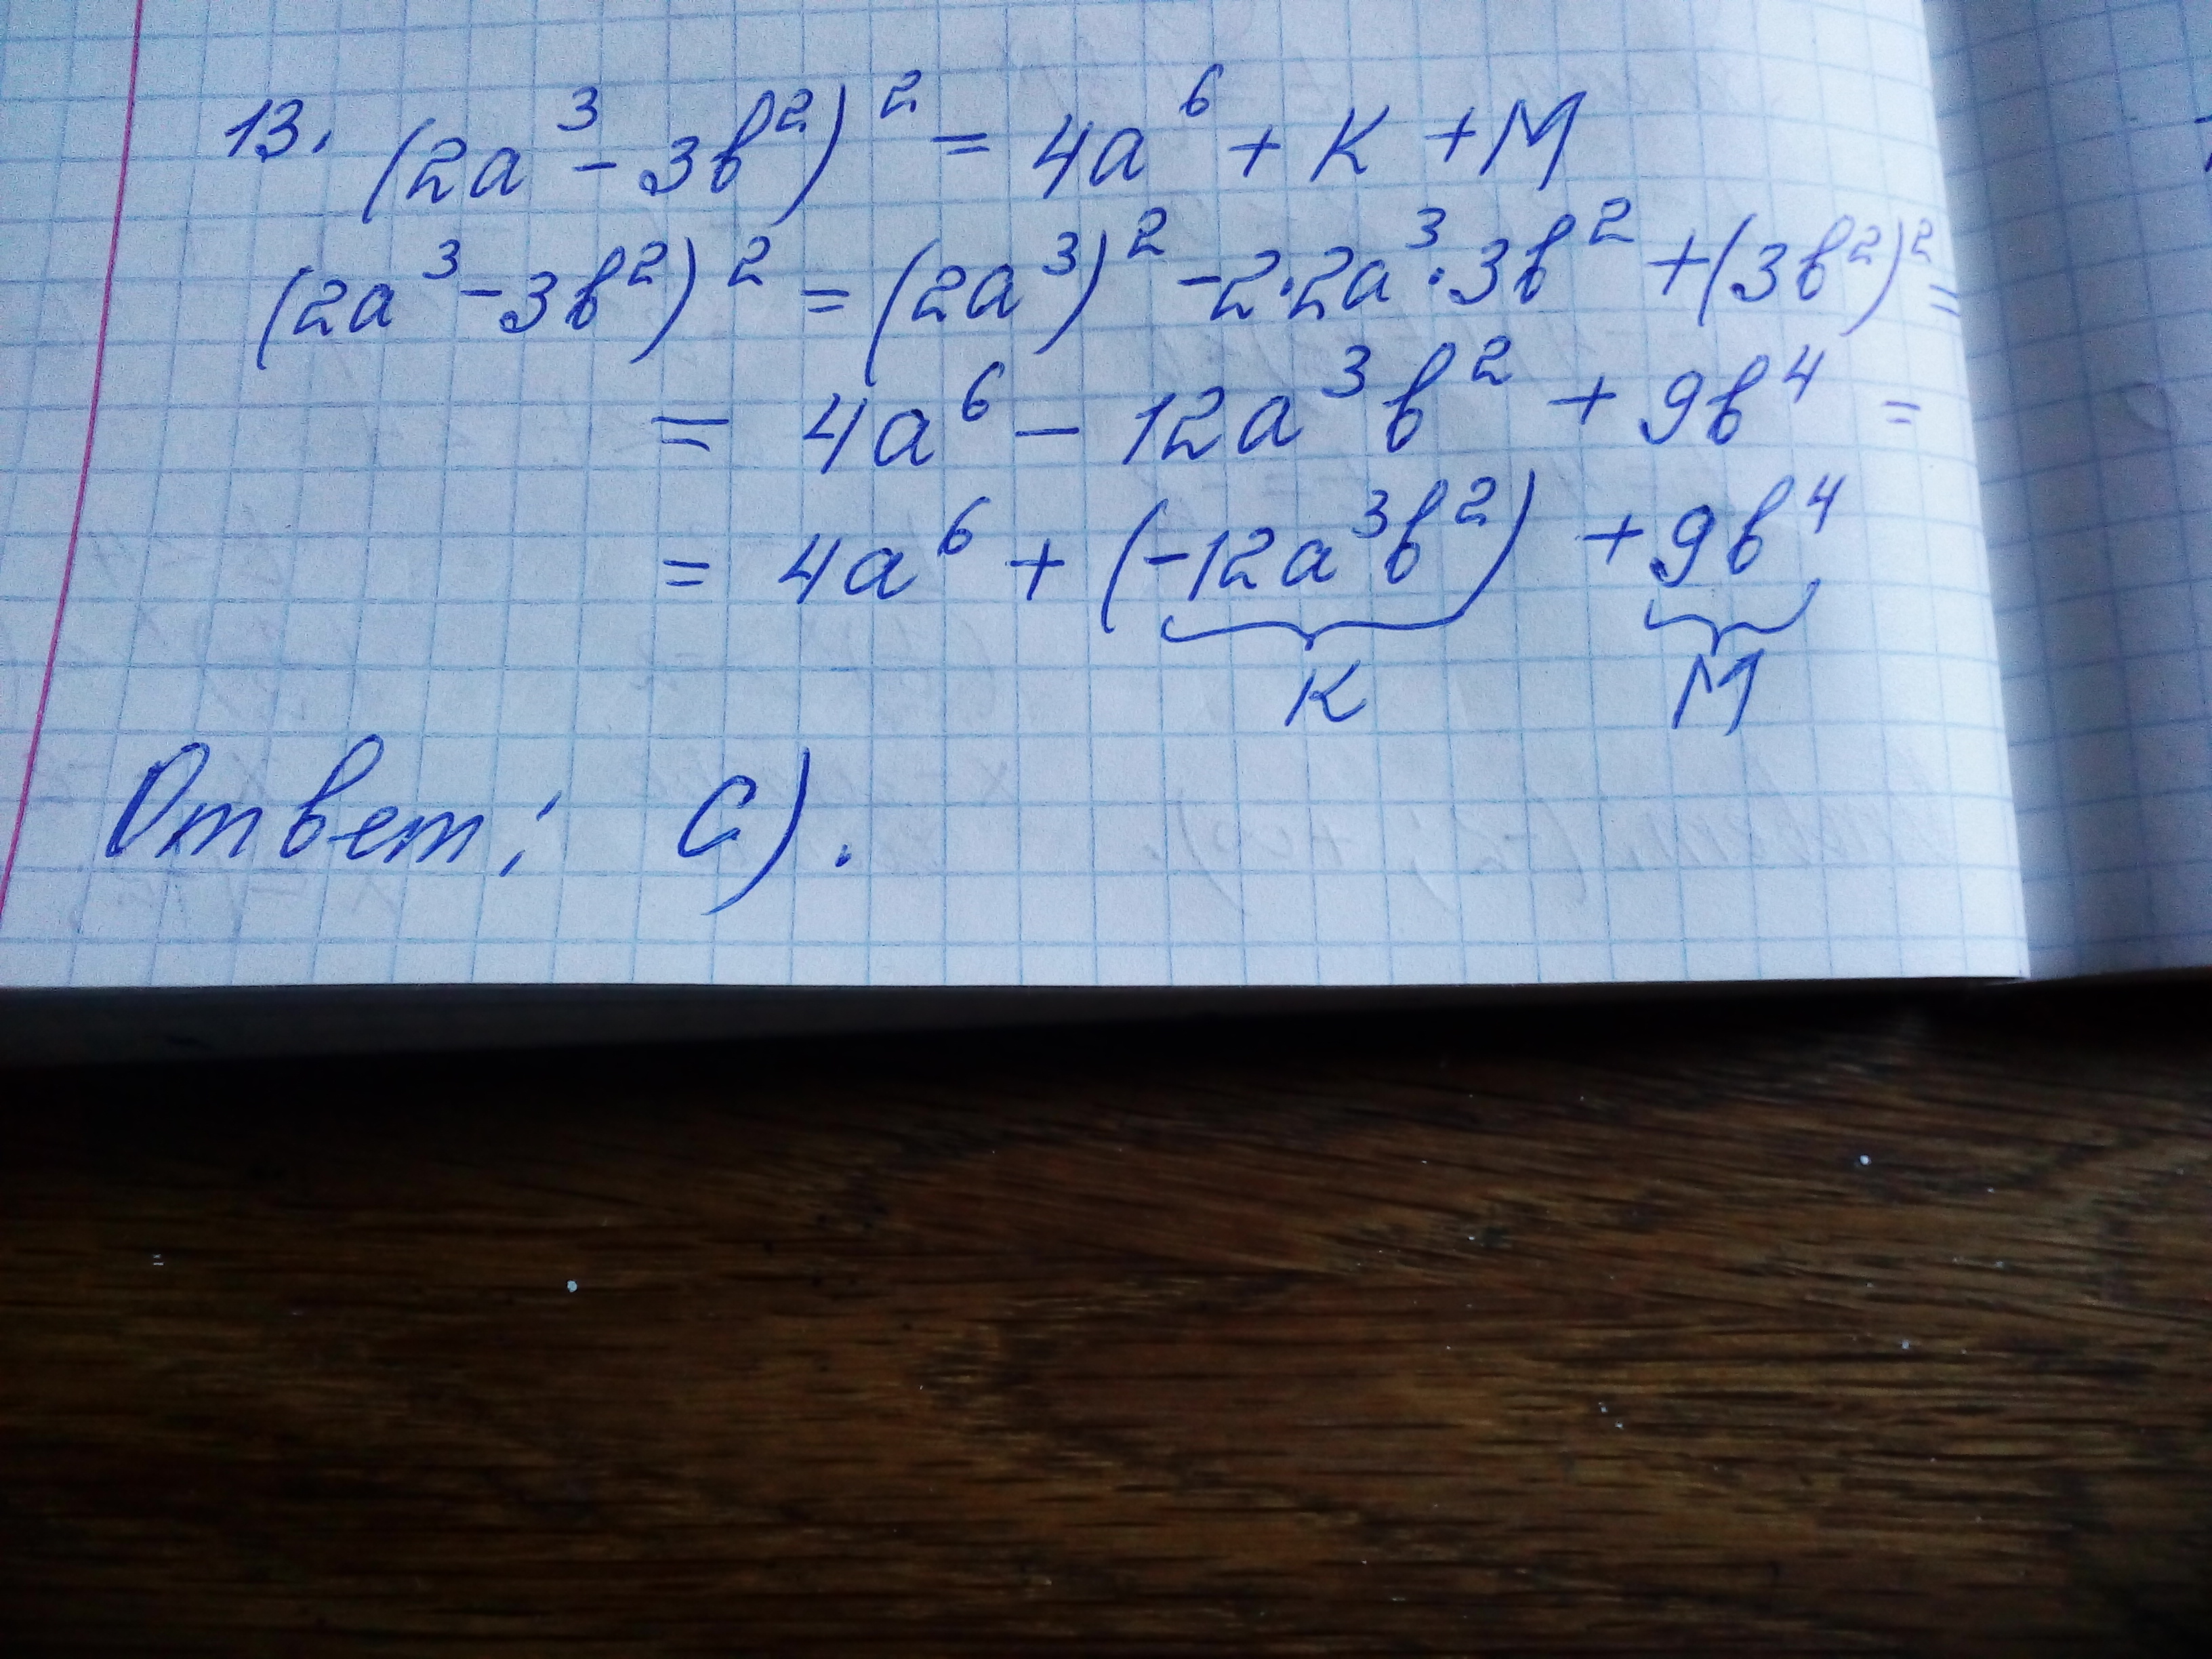 13. (2a³ - 3b²)² = 4a⁶ + K + M
(2a³ - 3b²)² = (2a³)² - 2·2a³·3b² + (3b²)² =
= 4a⁶ - 12a³b² + 9b⁴ =
= 4a⁶ + (-12a³b²) + 9b⁴
K M
Ответ: C).